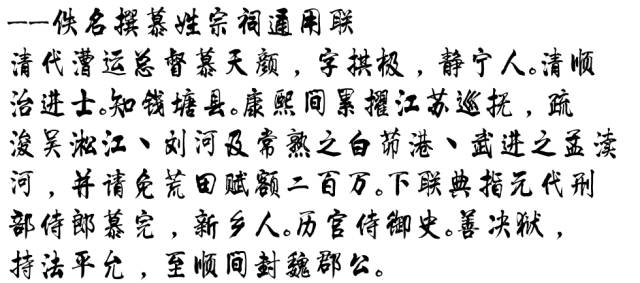 ——佚名撰慕姓宗祠通用联
清代漕运总督慕天颜，字拱极，静宁人。清顺
治进士。知钱塘县。康熙间累擢江苏巡抚，疏
浚吴淞江、刘河及常熟之白茆港、武进之孟渎
河，并请免荒田赋额二百万。下联典指元代刑
部侍郎慕完，新乡人。历官侍御史。善决狱，
持法平允，至顺间封魏郡公。